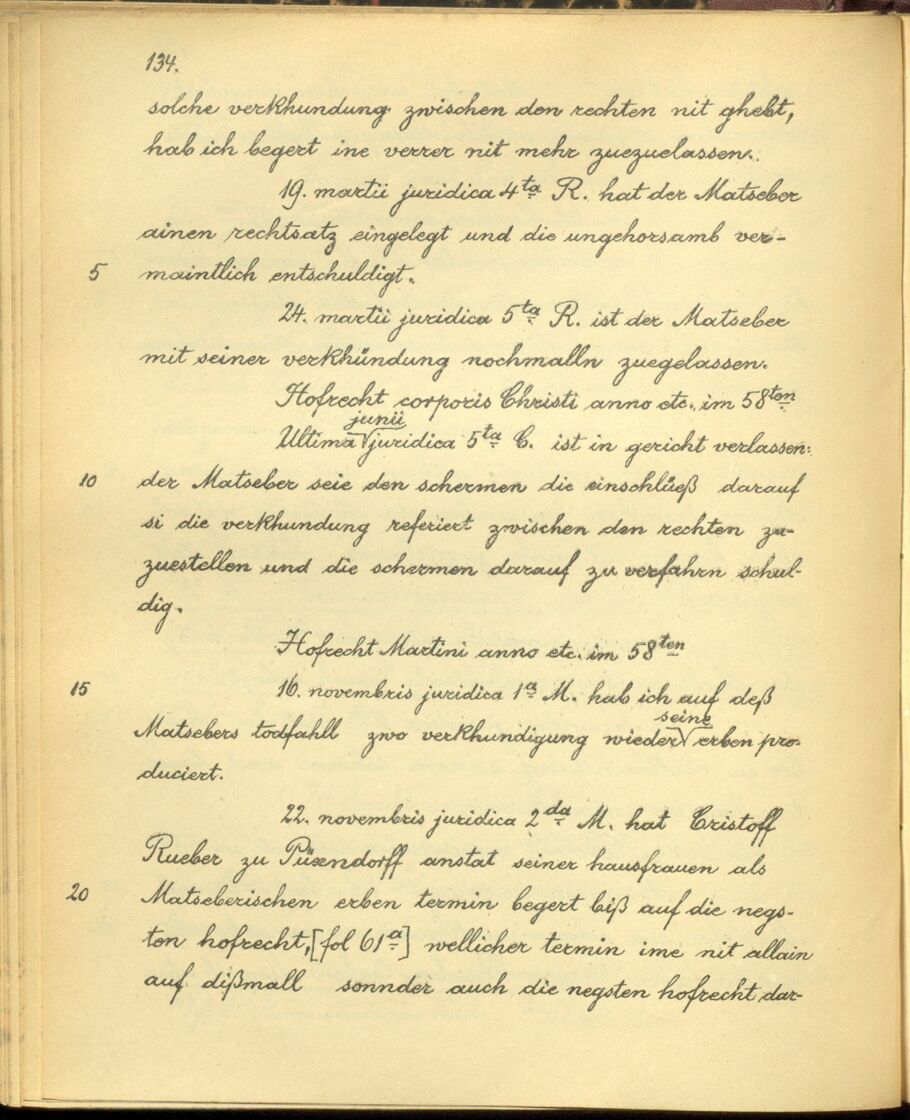 134.
solche verkhundung zwischen den rechten nit ghebt,
hab ich begert ine verrer nit mehr zuezuelassen.
19. martii juridica 4ta R. hat der Matseber
ainen rechtsatz eingelegt und die ungehorsamb ver-
5 maintlich entschuldigt.
24. martii juridica 5ta R. ist der Matseber
mit seiner verkhündung nochmalln zuegelassen.
Hofrecht corporis Christi anno etc. im 58ten
junii
Ultima √juridica 5ta C. ist in gericht verlassen:
10 der Matseber seie den schermen die einschlüeß darauf
si die verkhundung referiert zwischen den rechten zu-
zuestellen und die schermen darauf zu verfahrn schul-
dig.
Hofrecht Martini anno etc. im 58ten
15 16. novembris juridica 1a M. hab ich auf deß
seine
Matsebers todfahll zwo verkhundigung wieder√ erben pro-
duciert.
22. novembris juridica 2da M. hat Cristoff
Rueber zu Püxendorff anstat seiner hausfrauen als
20 Matseberischen erben termin begert biß auf die negs-
ten hofrecht, [fol 61a] wellicher termin ime nit allain
auf dißmall sonnder auch die negsten hofrecht dar-